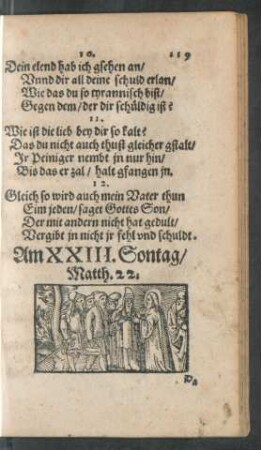 10. 119
Dein elend hab ich gsehen an/
Vnnd dir all deine schuld erlan/
Wie das du so tyrannisch bist/
Gegen dem/ der dir schüldig ist?
11.
Wie ist die lieb bey dir so kalt?
Das du nicht auch thust gleicher gstalt/
Jr Peiniger nembt jn nur hin/
Bis das er zal/ halt gfangen jn.
12.
Gleich so wird auch mein Vater thun
Eim jeden/ saget Gottes Son/
Der mit andern nicht hat gedult/
Vergibt jn nicht jr fehl vnd schuldt.
Am XXIII. Sontag/
Matth. 22.